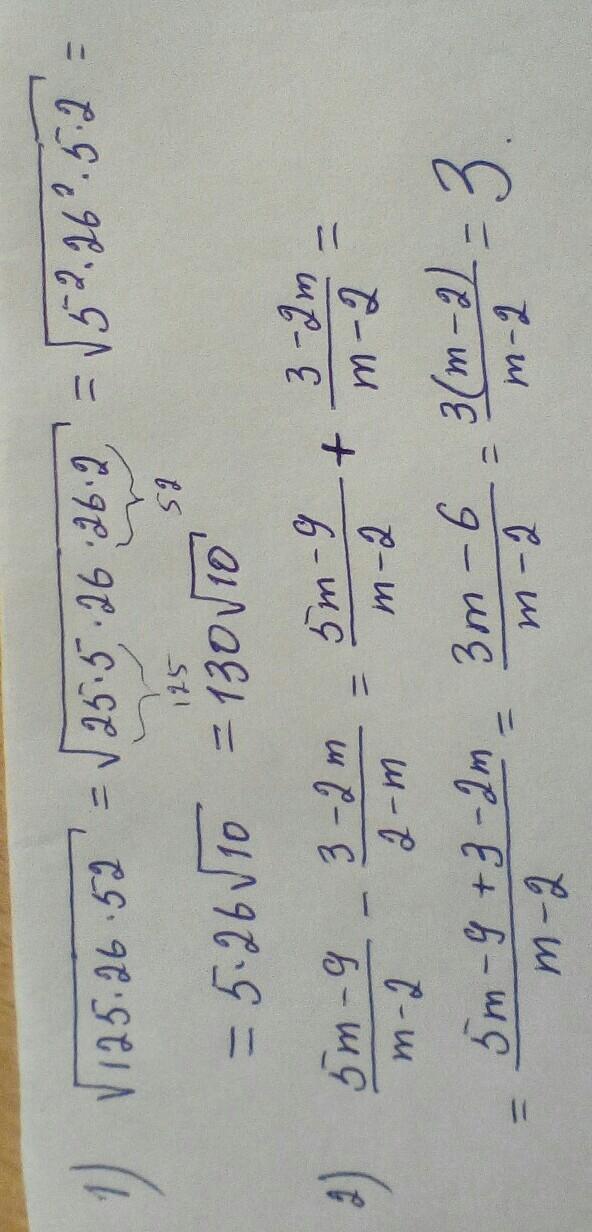 1) √125·26·52 = √25·5·26·26·2 = √5²·26²·5·2 =
125 52
= 5·26√10 = 130√10
2) (5m-9)/(m-2) - (3-2m)/(2-m) = (5m-9)/(m-2) + (3-2m)/(m-2) =
= (5m-9+3-2m)/(m-2) = (3m-6)/(m-2) = 3(m-2)/(m-2) = 3.